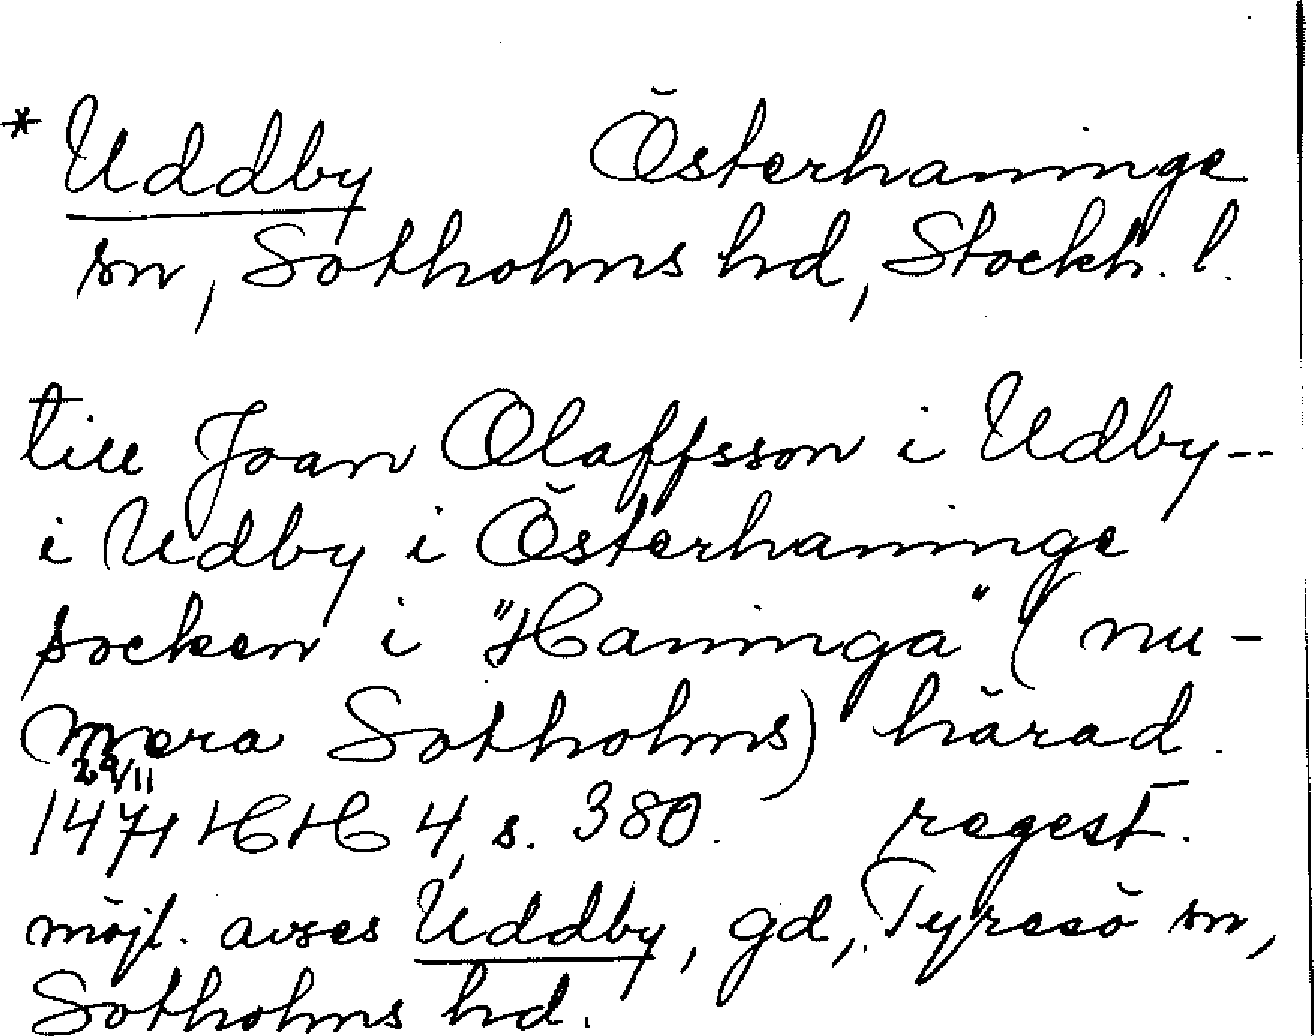 * Uddby Österhaninge
sn, Sotholms hd, Stockh. l.
till Joan Olaffsson i Udby--
i Udby i Österhaninge
socken i "Haninga" (nu-
mera Sotholms) härad.
29/11
1471 HH 4, s. 380. regest.
möjl. avses Uddby, gd, Tyresö sn,
Sotholms hd.